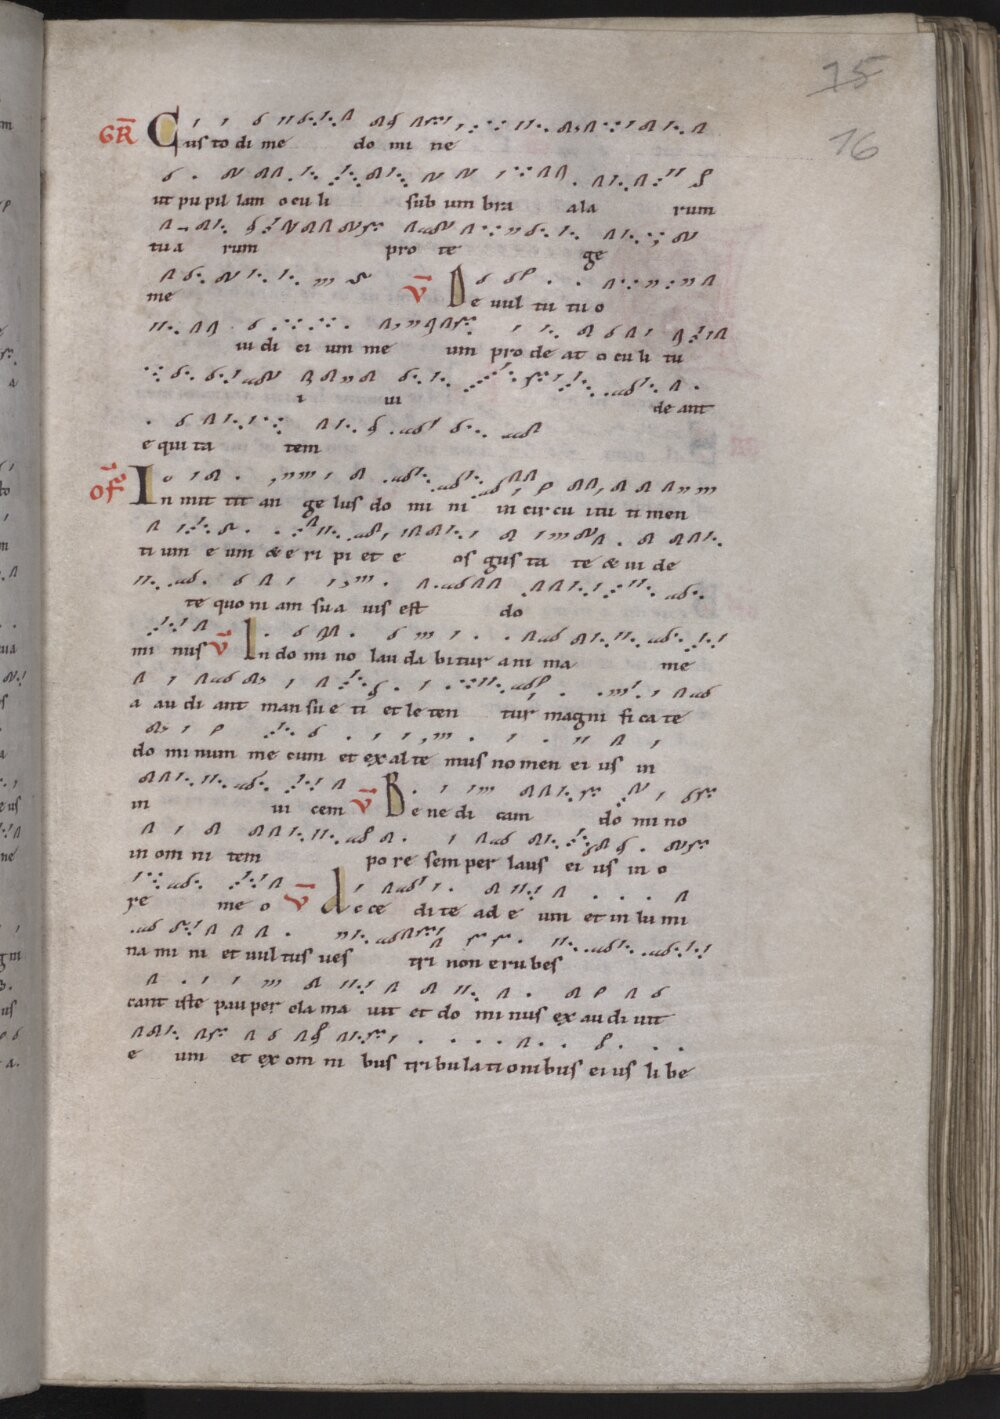 15
16
GR Cus to di me do mi ne
ut pu pil lam o cu li sub um bra ala rum
tu a rum pro te ge
me V De vul tu tu o
iu di ci um me um pro de at o cu li tu
i ui de ant
e qui ta tem
OF In mit tit an ge lus do mi ni in cir cu itu ti men
ti um e um & e ri pi et e os gus ta te & ui de
te quo ni am su a uis est do
mi nus V In do mi no lau da bi tur a ni ma me
a au di ant man su e ti et le ten tur magni fi ca te
do mi num me cum et ex al te mus no men ei us in
in ui cem V Be ne di cam do mi no
in om ni tem po re sem per laus ei us in o
re me o V Ac ce di te ad e um et in lu mi
na mi ni et uul tus ues tri non e ru bes
cant iste pau per cla ma uit et do mi nus ex au di uit
e um et ex om ni bus tri bu la ti oni bus ei us li be